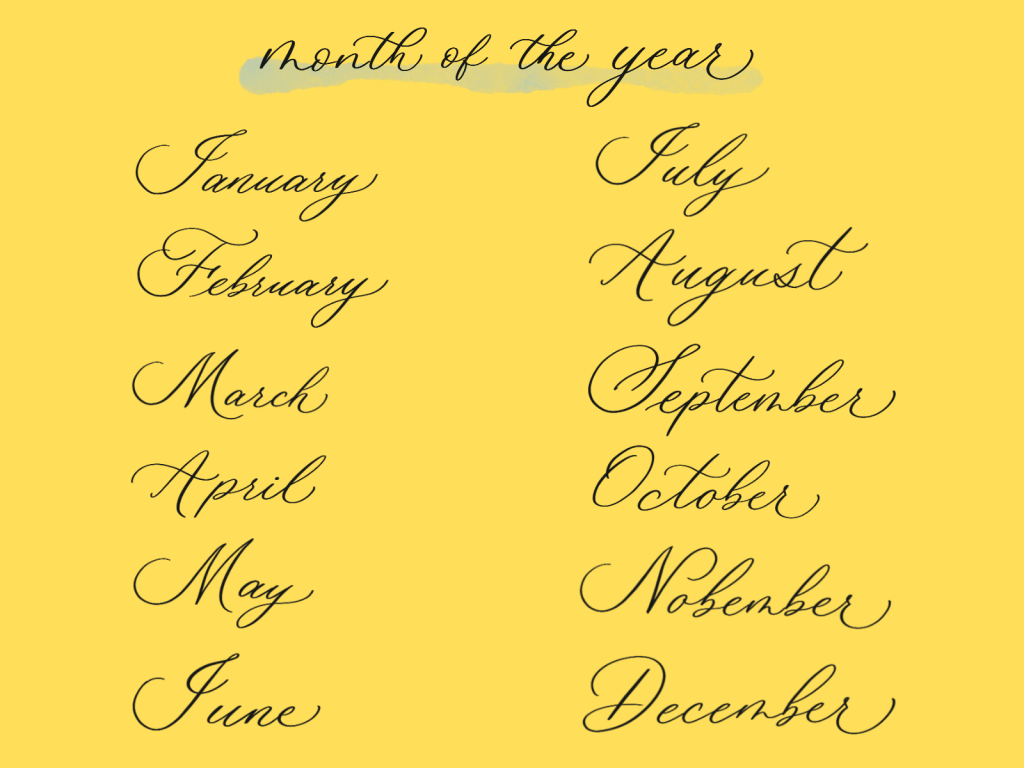 month of the year
January
February
March
April
May
June
July
August
September
October
Nobember
December